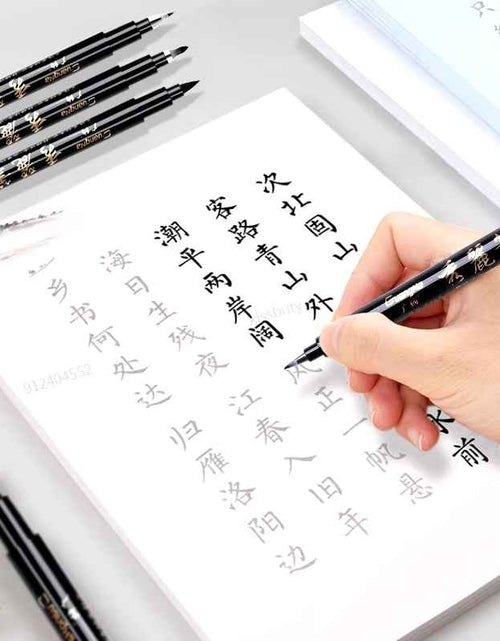 次北固山
客路青山外 水前
潮平两岸阔 风正一帆悬
海日生残夜 江春入旧年
乡书何处达 归雁洛阳边
912404552
Guangna
秀麗
只